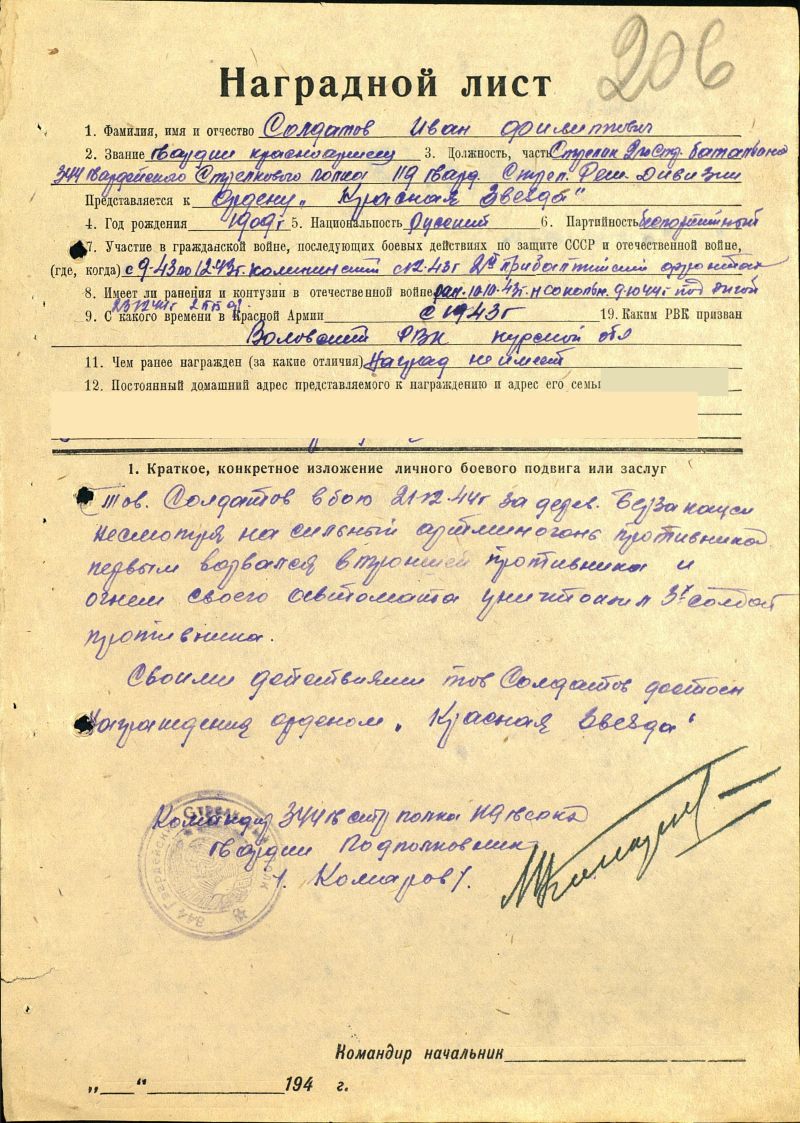 206
Наградной лист
1. Фамилия, имя и отчество Солдатов Иван Филиппович
2. Звание гвардии красноармеец 3. Должность, часть Стрелок 2го стр. баталиона
344 гвардейского Стрелкового полка 119 гвард. Стрел. Реж. Дивизии
Представляется к ордену „Красная Звезда"
4. Год рождения 1909 г 5. Национальность Русский 6. Партийность беспартийный
7. Участие в гражданской войне, последующих боевых действиях по защите СССР и отечественной войне,
(где, когда) с 9-43 по 12-43 г. калининский с 12-43 г 2й прибалтийский фронтах
8. Имеет ли ранения и контузии в отечественной войне ран. 10-10-43 г. Н сокольн. 9-10 44 г под Ригой
23-12 44 г
9. С какого времени в Красной Армии с 1943 г 19. Каким РВК призван
Воловский РВК курской обл
11. Чем ранее награжден (за какие отличия) Наград не имеет
12. Постоянный домашний адрес представляемого к награждению и адрес его семьи
1. Краткое, конкретное изложение личного боевого подвига или заслуг
тов. Солдатов в бою 21-12-44 г за дерев.
несмотря на сильный артминогонь противника
первым ворвался в траншей противника и
огнем своего автомата уничтожил 3х солдат
противника.
Своими действиями тов Солдатов достоен
награждения орденом „Красная Звезда"
Командир 344 гв стр полка 119 гв
гвардии Подполковник
/ Комаров /.
344 Гвардейский Стрелковый
Командир начальник
„ " 194 г.